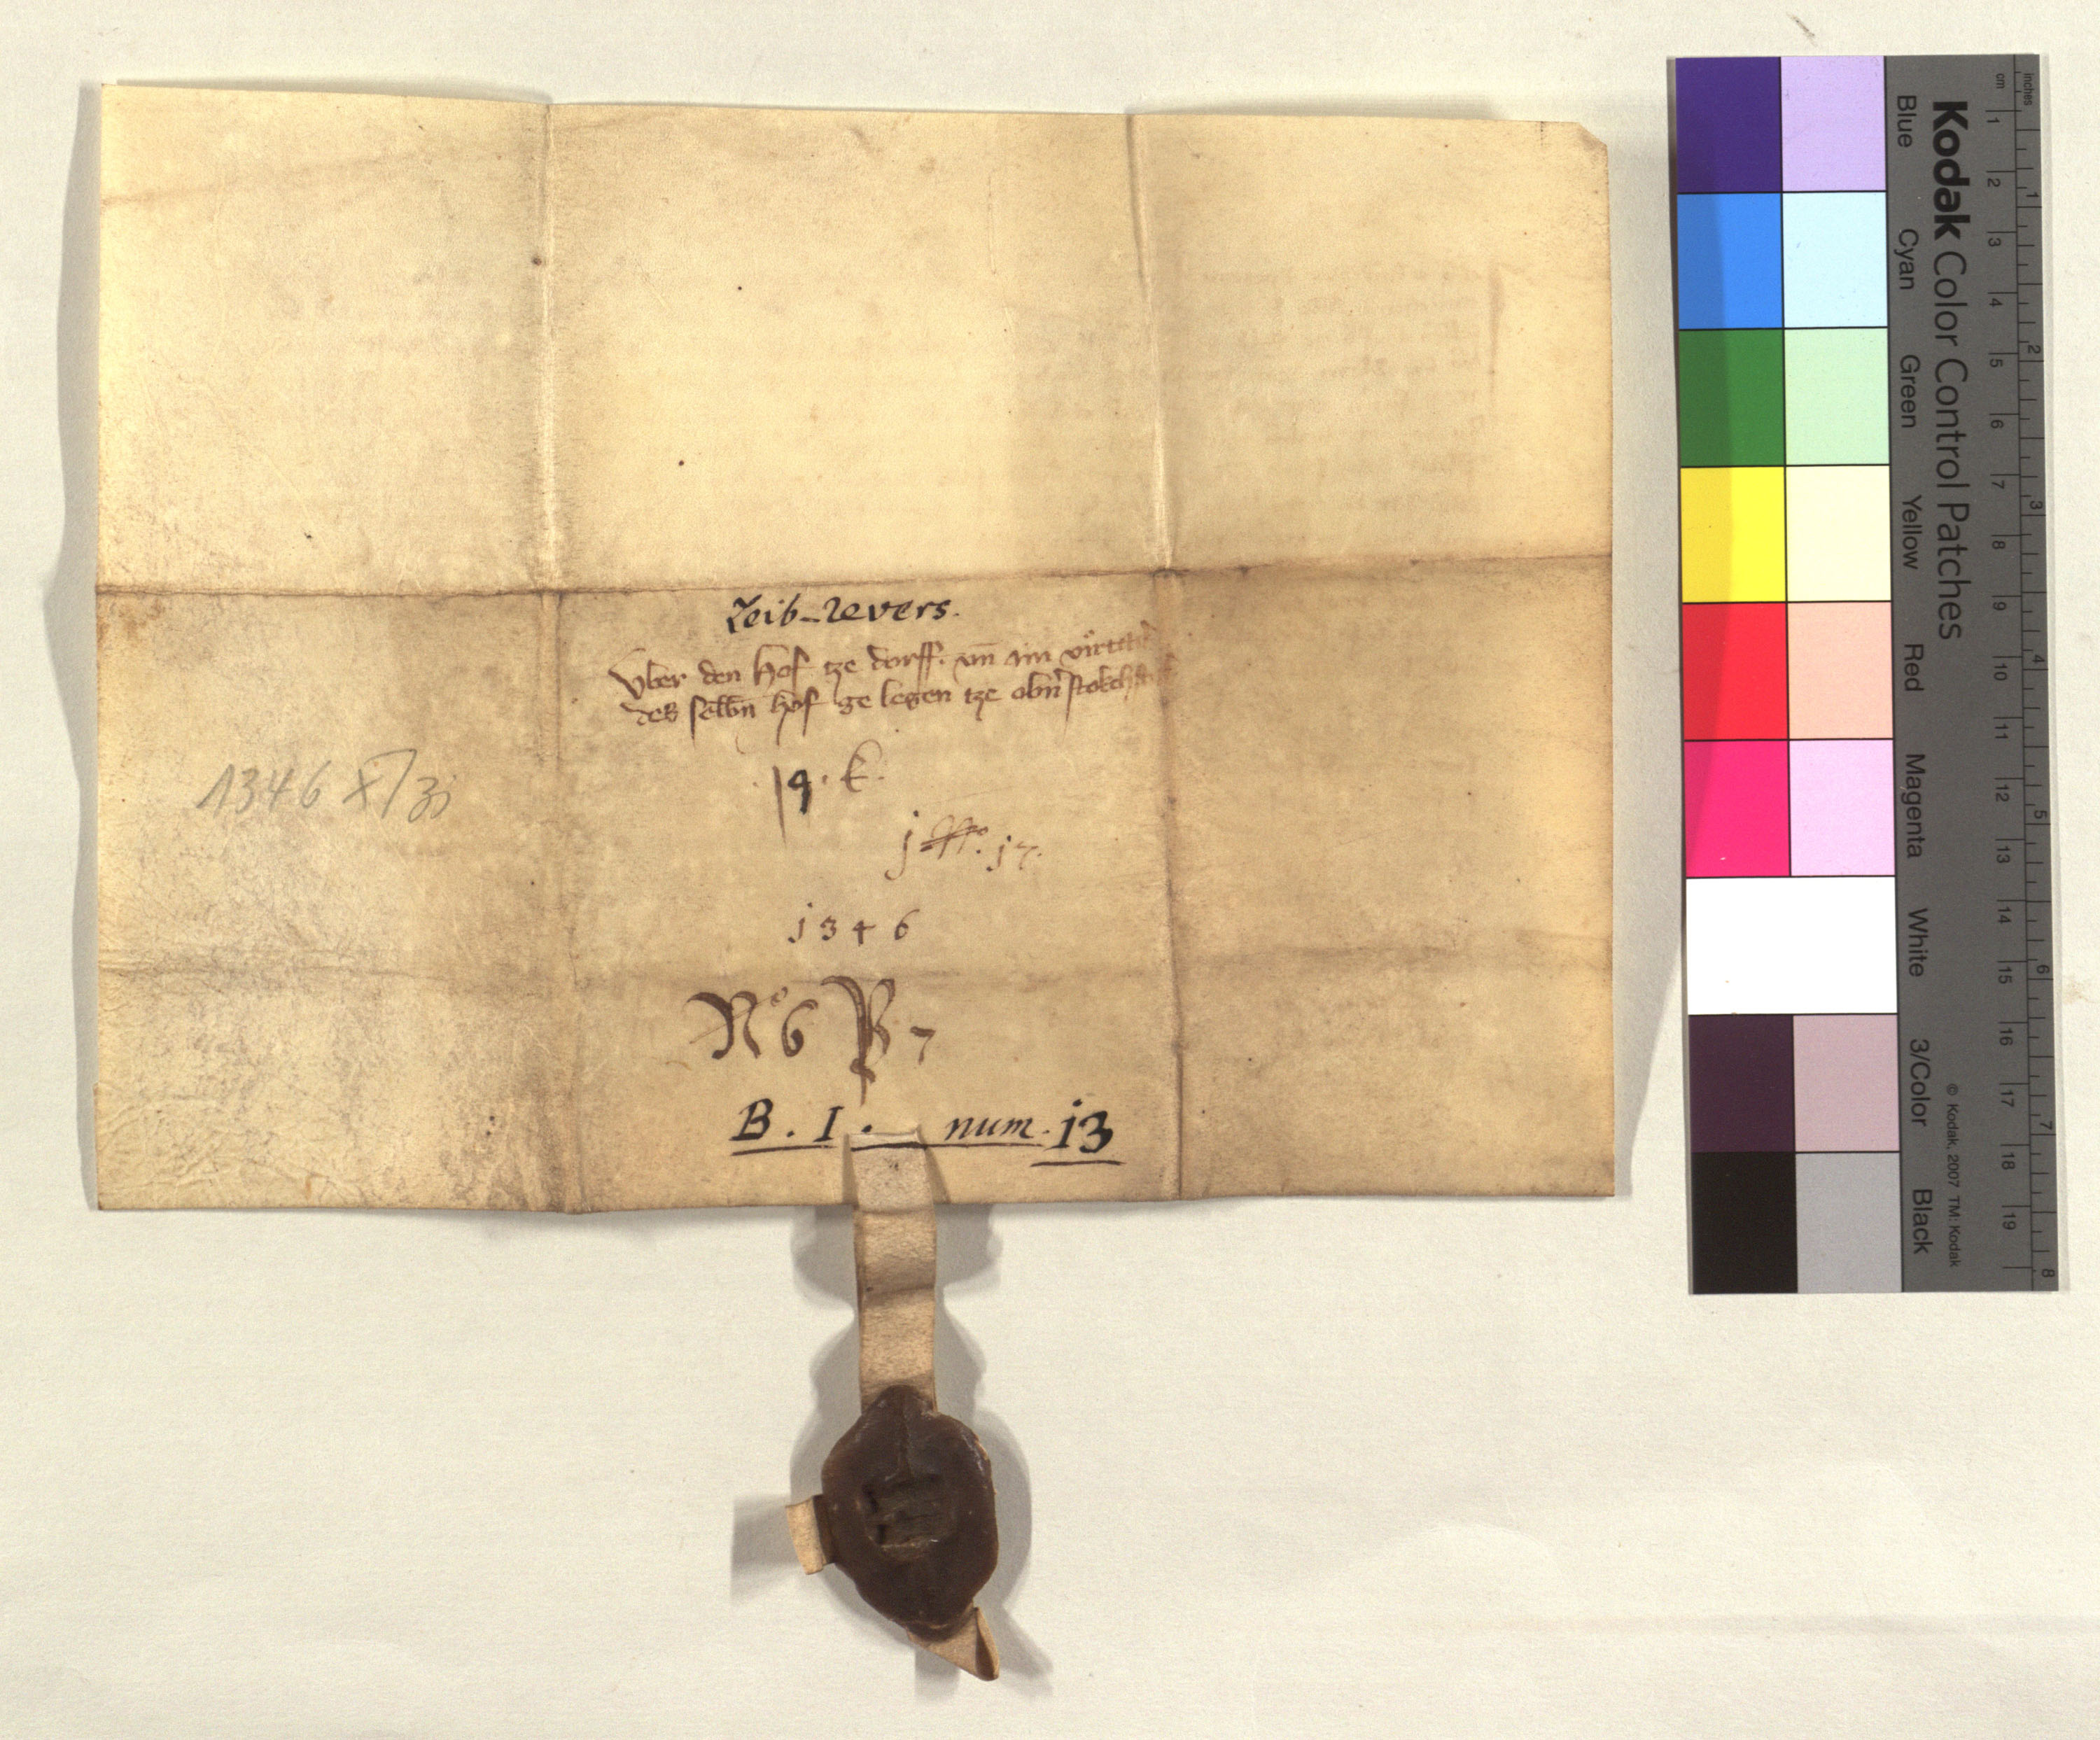 Leib-Revers.
Vber den Hof tze dorff. vnd ain virtail
des selbn hof ge legen tze obnstokch
19. k.
j 17.
1346
Nº 6 B 7
B. I. num. 13
1346 X/31
Kodak Color Control Patches
Blue Cyan Green Yellow Red Magenta White 3/Color Black
© Kodak, 2007 TM: Kodak
cm 1 2 3 4 5 6 7 8 9 10 11 12 13 14 15 16 17 18 19
inches 1 2 3 4 5 6 7 8